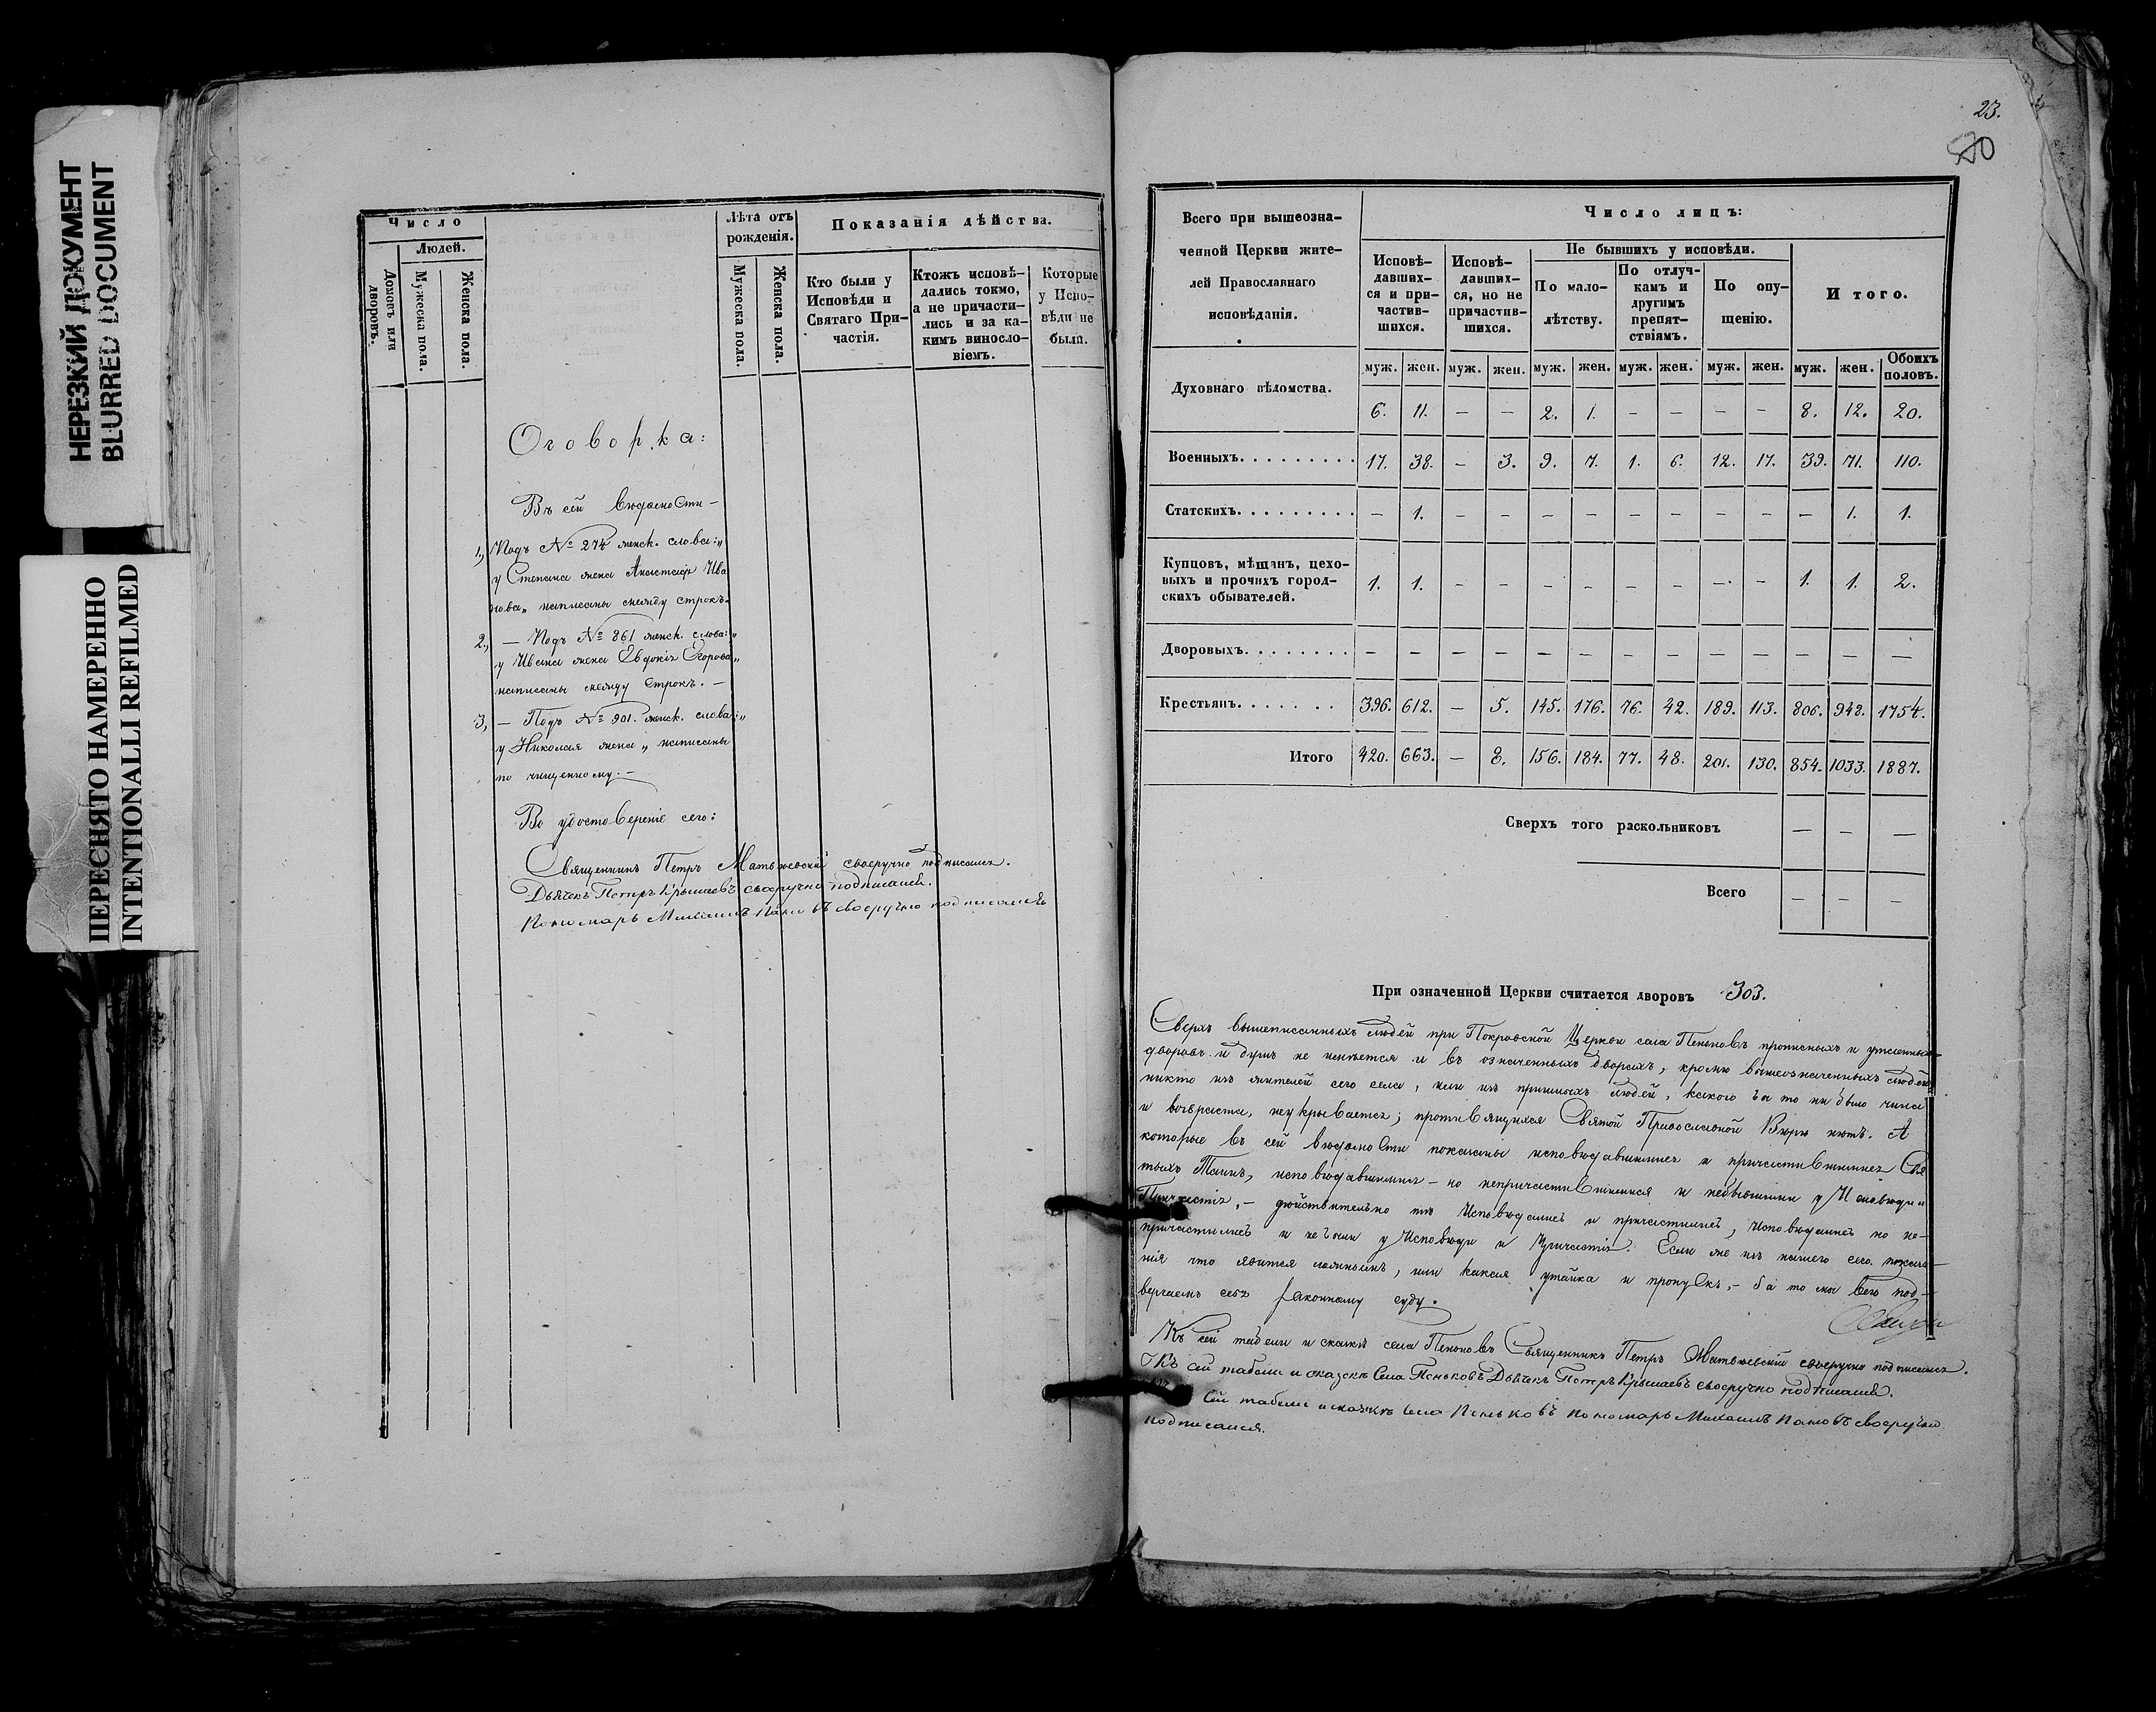 НЕРЕЗКИЙ ДОКУМЕНТ
BLURRED DOCUMENT
ПЕРЕСНЯТО НАМЕРЕННО
INTENTIONALLI REFILMED
Число
Людей.
Домовъ или дворовъ.
Мужеска пола.
Женска пола.
Лѣта отъ рожденія.
Мужеска пола.
Женска пола.
Показанія дѣйства.
Кто были у Исповѣди и Святаго При-частія.
Ктожъ исповѣ-дались токмо, а не причасти-лись и за ка-кимъ винословіемъ.
Которые у Испо-вѣди не были.
Оговорка:
Въ сей вѣдомости –
1., Подъ № 274 женск. слова: „
у Степана жена Анастасія Ива
нова„ написаны между строкъ.
2., – Подъ № 861 женск. слова: „
у Ивана жена Евдокія Егорова„
написаны между строкъ. –
3, – Подъ № 901. женск. слова: „
у Николая жена „ написаны
по чищенному. –
Во удостовѣреніе сего:
Священникъ Петръ Матвѣевскій своеручно подписался.
Дьячекъ Петръ Крылаевъ своеручно подписался.
Пономарь Михаилъ Пановъ своеручно подписался
23.
Всего при вышеозна-
ченной Церкви жите-
лей Православнаго
исповѣданія.
Число лицъ:
Исповѣ-давших-ся и при-частив-шихся.
Исповѣ-давших-ся, но не причастив-шихся.
Не бывшихъ у исповѣди.
По мало-лѣтству.
По отлуч-камъ и другимъ препят-ствіямъ.
По опу-щенію.
Итого.
муж. жен. муж. жен. муж. жен. муж. жен. муж. жен. муж. жен. Обоихъ половъ.
Духовнаго вѣдомства. 6. 11. – – 2. 1. – – – – 8. 12. 20.
Военныхъ. 17. 38. – 3. 9. 7. 1. 6. 12. 17. 39. 71. 110.
Статскихъ. – 1. – – – – – – – – – 1. 1.
Купцовъ, мѣщанъ, цехо-
выхъ и прочихъ город-
скихъ обывателей. 1. 1. – – – – – – – – 1. 1. 2.
Дворовыхъ. – – – – – – – – – – – – –
Крестьянъ. 396. 612. – 5. 145. 176. 76. 42. 189. 113. 806. 948. 1754.
Итого 420. 663. – 8. 156. 184. 77. 48. 201. 130. 854. 1033. 1887.
Сверхъ того раскольниковъ – – –
Всего – – –
При означенной Церкви считается дворовъ 303.
Сверхъ вышеписанныхъ людей при Покровской Церкви села Пеньковъ прописныхъ и утаенныхъ
дворовъ и душъ не имѣется и въ означенныхъ дворахъ, кромѣ вышеозначенныхъ людей
никто изъ жителей сего села, или изъ пришлыхъ людей, какого бы то ни было чина
и возраста, не укрывается; противящихся Святой Православной Вѣрѣ нѣтъ. А
которые въ сей вѣдомости показаны исповѣдавшимися и причастившимися Свя
тыхъ Таинъ, исповѣдавшимися – но непричастившимися и небывшими у Исповѣди и
Причастія, – дѣйствительно тѣ Исповѣдались и причастились, Исповѣдались но не-
причастились и не были у Исповѣди и Причастія. Если же изъ нашего сего показа-
нія что явится ложнымъ, или какая утайка и пропускъ, – за то мы всего под-
вергаемъ себя законному суду.
Къ сей табели и сказкѣ села Пеньковъ Священникъ Петръ Матвѣевскій своеручно подписался.
Къ сей табели и сказкѣ Села Пеньковъ Дьячекъ Петръ Крылаевъ своеручно подписался.
сей табели и сказкѣ села Пеньковъ пономарь Михаилъ Пановъ своеручно
подписался.